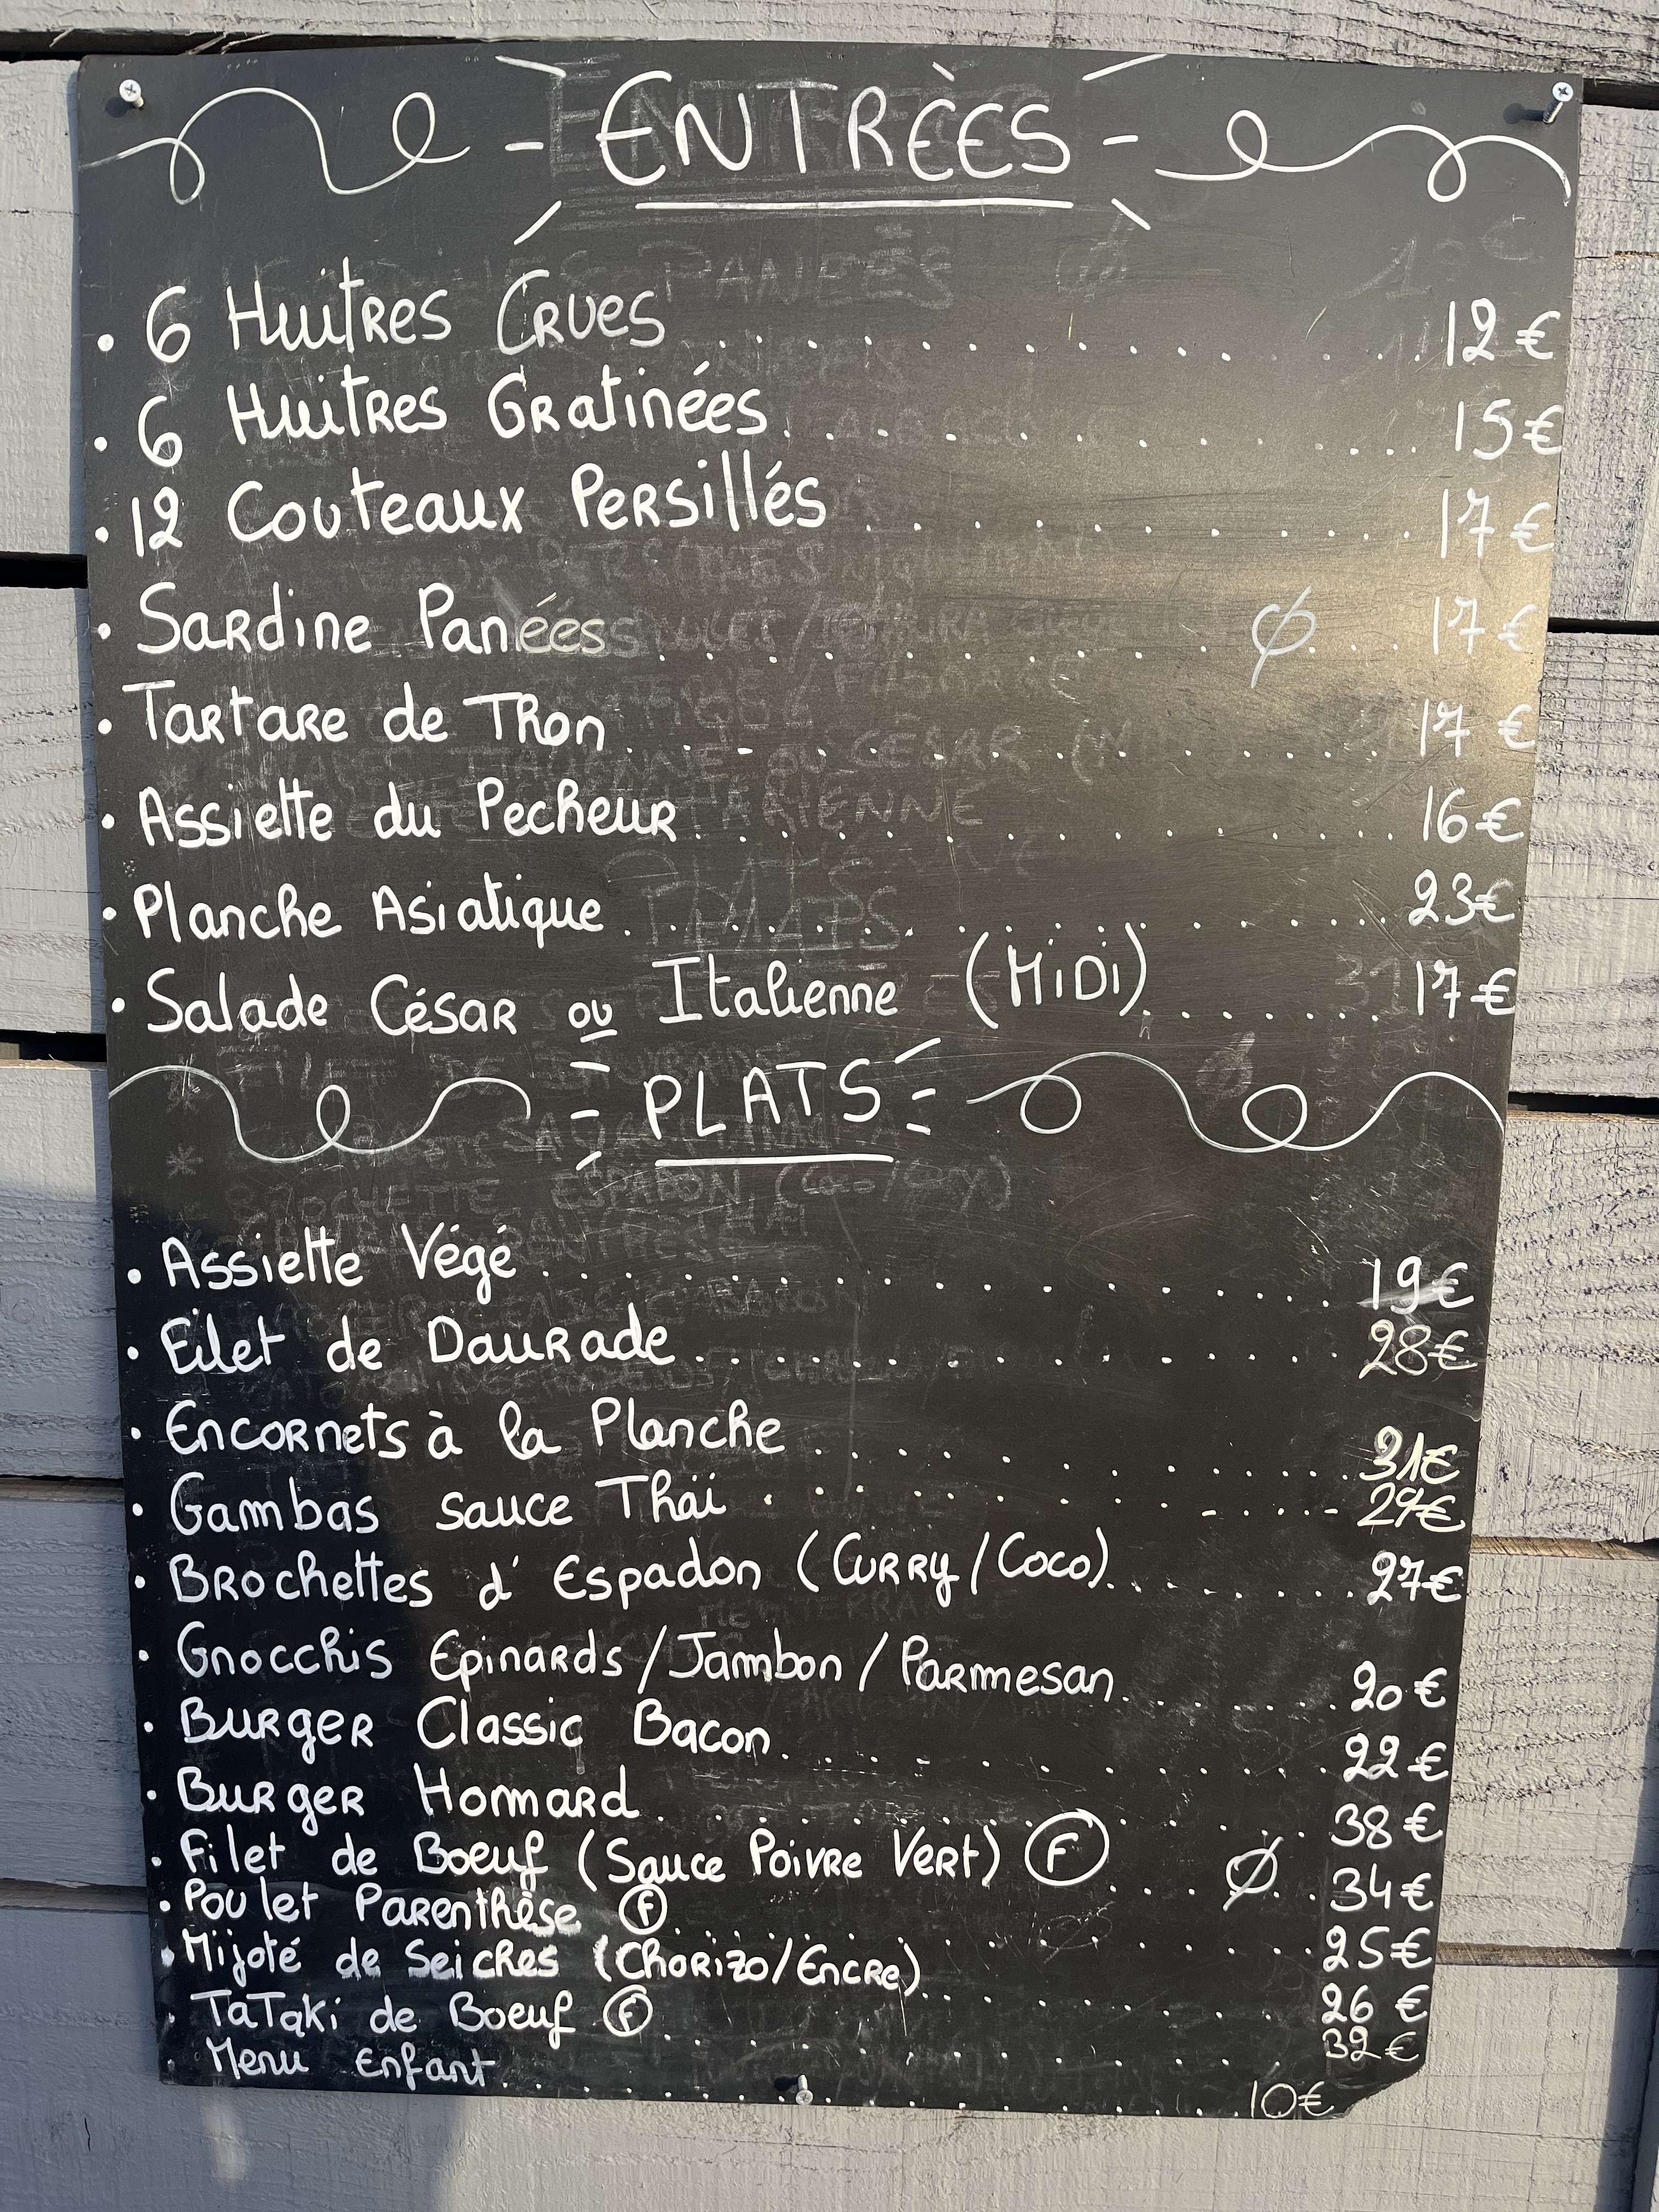 - ENTRÈES -
• 6 Huitres Crues .............. 12 €
• 6 Huitres Gratinées .............. 15 €
• 12 Couteaux Persillés .............. 17 €
• Sardine Panéés .............. Ø ... 17 €
• Tartare de Thon .............. 17 €
• Assiette du Pecheur .............. 16 €
• Planche Asiatique .............. 23 €
• Salade César ou Italienne (MiDi) ........ 17 €
- PLATS -
• Assiette Végé .............. 19 €
• Filet de Daurade .............. 28 €
• Encornets à la Planche .............. 31 €
• Gambas sauce Thaï .............. 29 €
• Brochettes d' Espadon (Curry/Coco) ........ 27 €
• Gnocchis Epinards/Jambon/Parmesan ........ 20 €
• Burger Classic Bacon .............. 22 €
• Burger Homard .............. 38 €
• Filet de Boeuf (Sauce Poivre Vert) Ⓕ .... Ø .. 34 €
• Poulet Parenthèse Ⓕ .............. 25 €
• Mijoté de Seiches (Chorizo/Encre) ........ 26 €
• TaTaki de Boeuf Ⓕ .............. 32 €
• Menu Enfant .............. 10 €